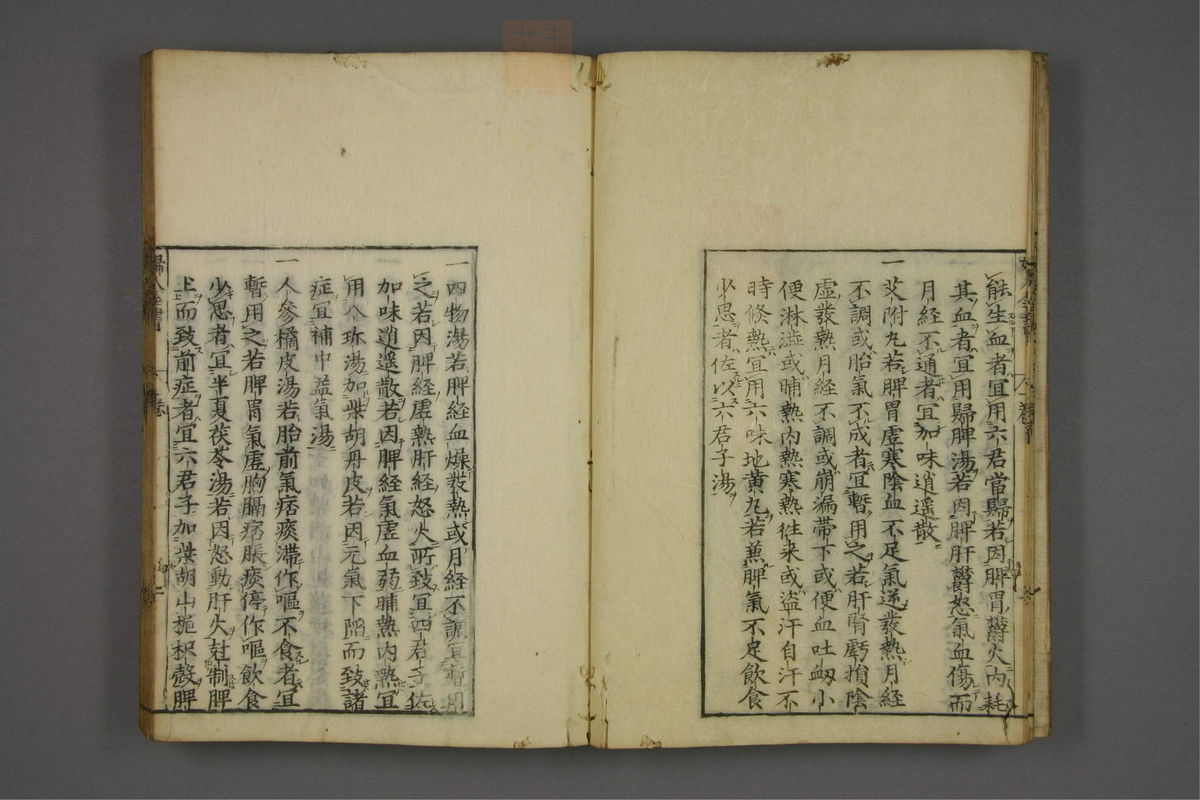 能生血者宜用六君當歸若因脾胃鬱火内耗
其血者宜用歸脾湯若因脾肝鬱怒氣血傷而
月經不通者宜加味逍遥散
一艾附丸若脾胃虚寒陰血不足氣逆發熱月經
不調或胎氣不成者宜暫用之若肝腎虧損陰
虚發熱月經不調或崩漏帶下或便血吐衂小
便淋澁或晡熱内熱寒熱徃来或盗汗自汗不
時倏熱宜用六味地黄丸若兼脾氣不足飲食
少思者佐以六君子湯
一四物湯若脾經血燥發熱或月經不調宜暫用
之若因脾經虚熱肝經怒火所致宜四君子佐
加味逍遥散若因脾經氣虚血弱晡熱内熱宜
用八珎湯加柴胡丹皮若因元氣下陷而致諸
症宜補中益氣湯
一人參橘皮湯若胎前氣痞痰滯作嘔不食者宜
暫用之若脾胃氣虚胸膈痞脹痰停作嘔飲食
少思者宜半夏茯苓湯若因怒動肝火尅制脾
土而致前症者宜六君子加柴胡山梔枳殼脾